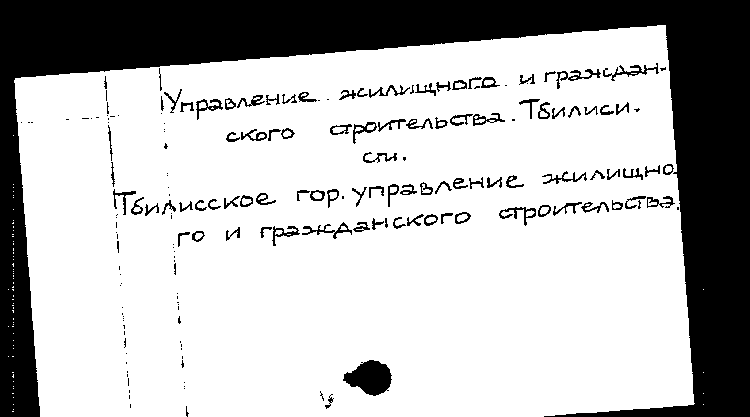 Управление жилищного и граждан-
ского строительства. Тбилиси.
см.
Тбилисское гор. управление жилищно
го и гражданского строительства.